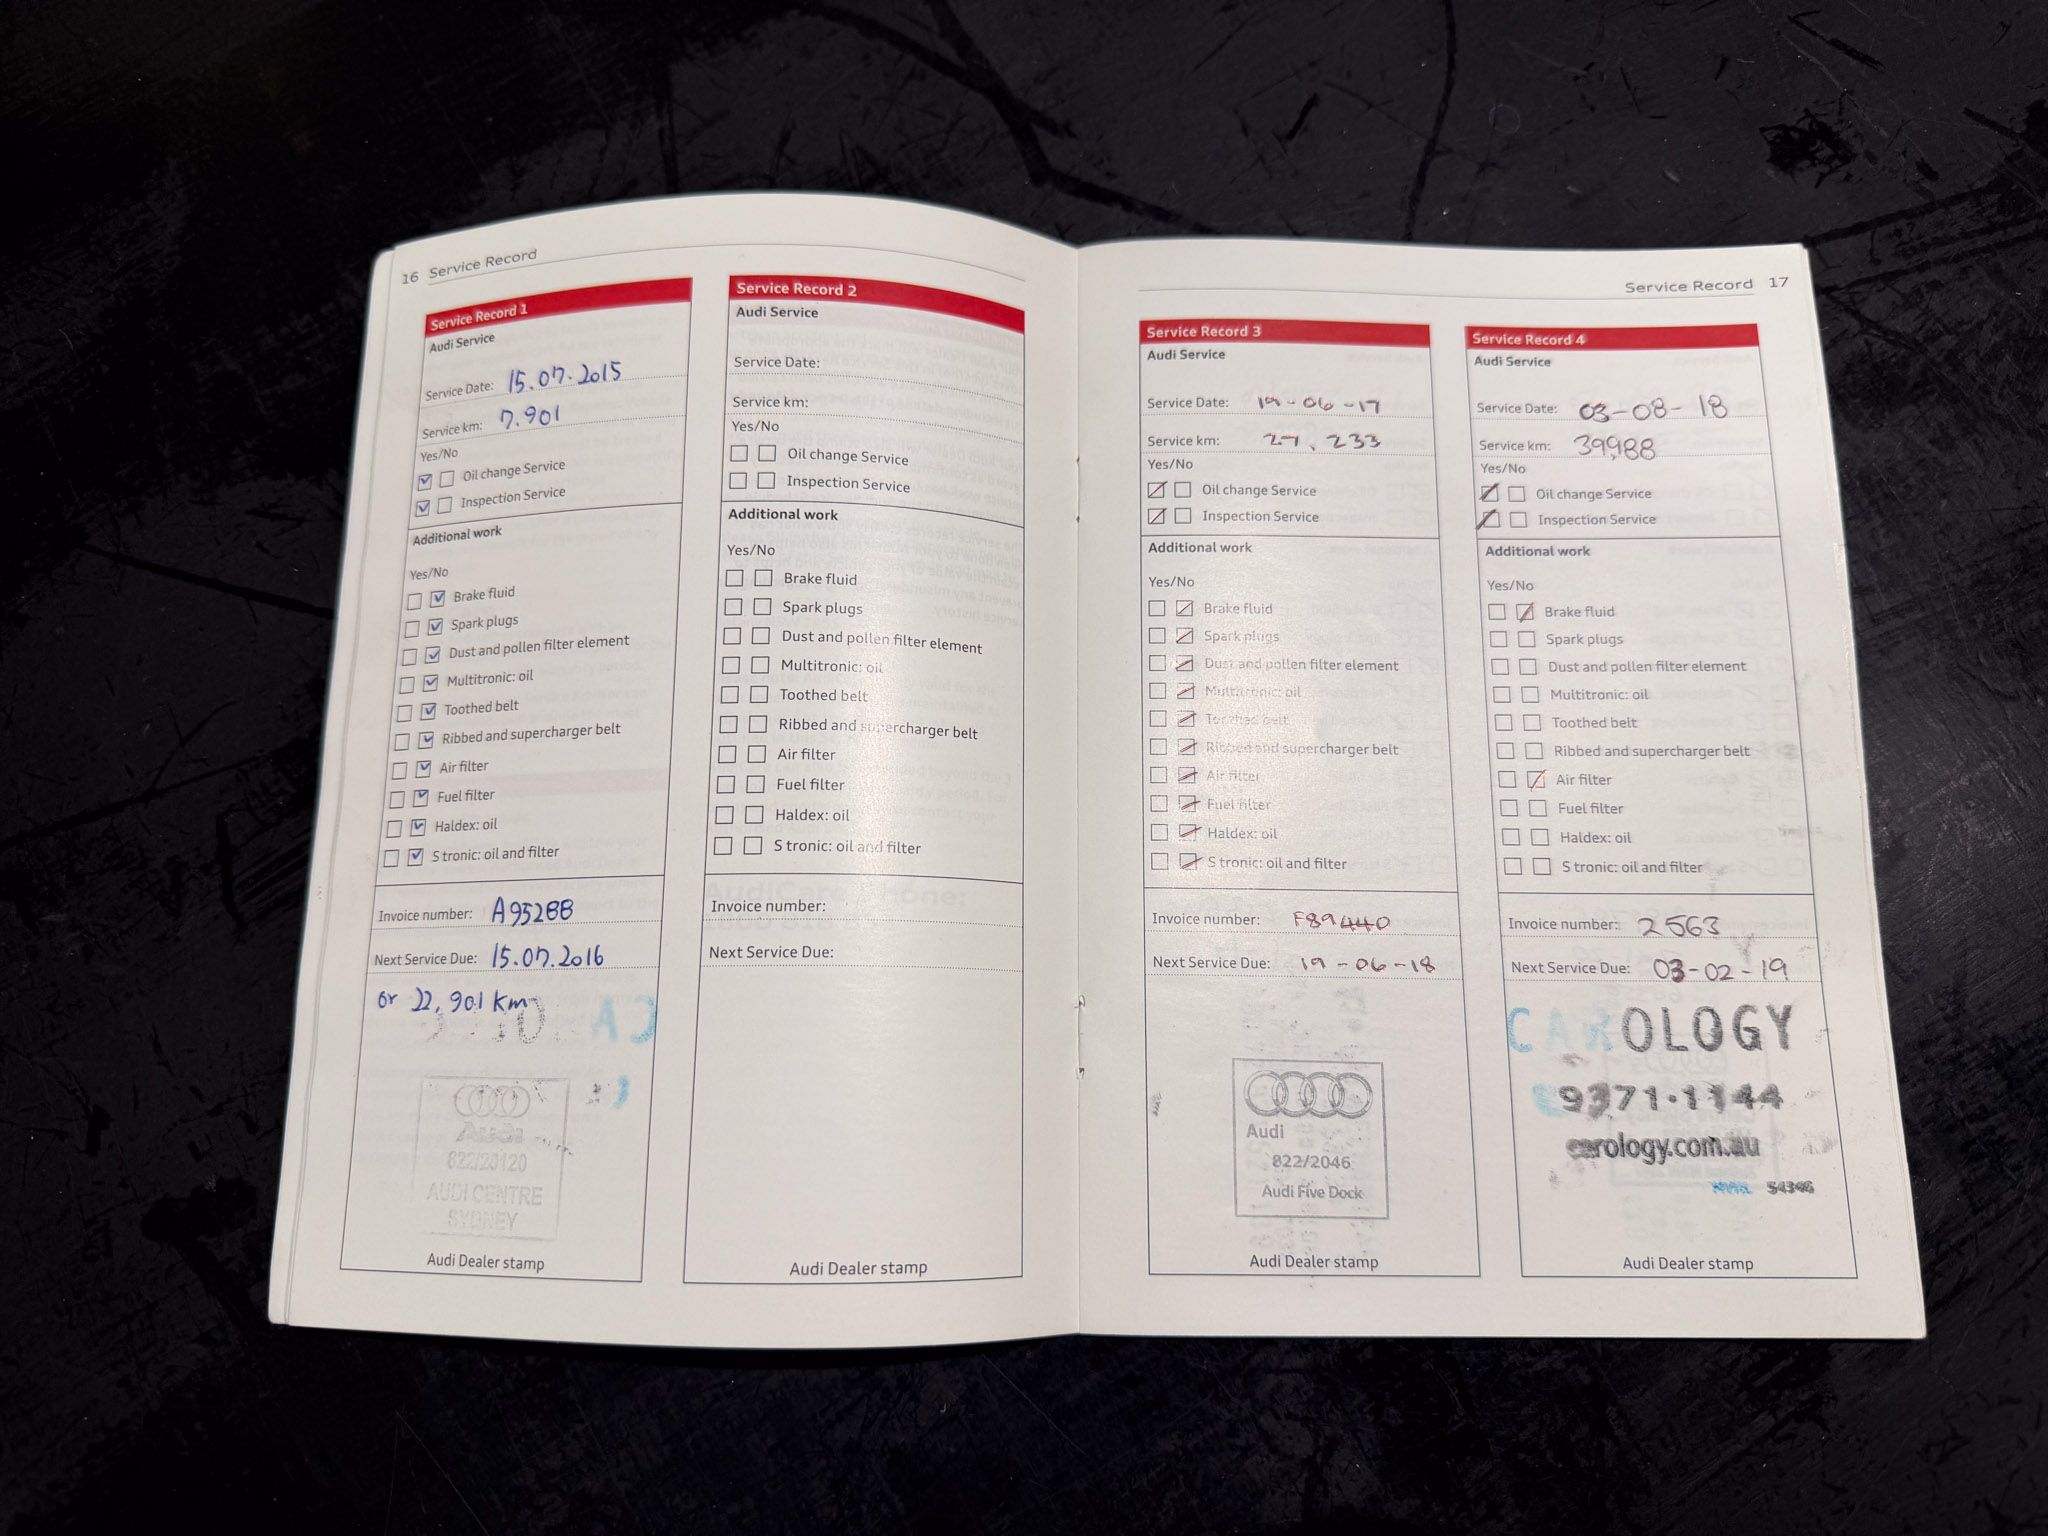 16 Service Record
Service Record 1
Audi Service
Service Date: 15.07.2015
Service km: 7.901
Yes/No
Oil change Service
Inspection Service
Additional work
Yes/No
Brake fluid
Spark plugs
Dust and pollen filter element
Multitronic: oil
Toothed belt
Ribbed and supercharger belt
Air filter
Fuel filter
Haldex: oil
S tronic: oil and filter
Invoice number: A95288
Next Service Due: 15.07.2016
or 22,901 km
Audi
822/20120
AUDI CENTRE
SYDNEY
Audi Dealer stamp
Service Record 2
Audi Service
Service Date:
Service km:
Yes/No
Oil change Service
Inspection Service
Additional work
Yes/No
Brake fluid
Spark plugs
Dust and pollen filter element
Multitronic: oil
Toothed belt
Ribbed and supercharger belt
Air filter
Fuel filter
Haldex: oil
S tronic: oil and filter
Invoice number:
Next Service Due:
Audi Dealer stamp
Service Record 17
Service Record 3
Audi Service
Service Date: 19-06-17
Service km: 27,233
Yes/No
Oil change Service
Inspection Service
Additional work
Yes/No
Brake fluid
Spark plugs
Dust and pollen filter element
Multitronic: oil
Toothed belt
Ribbed and supercharger belt
Air filter
Fuel filter
Haldex: oil
S tronic: oil and filter
Invoice number: F89440
Next Service Due: 19-06-18
Audi
822/2046
Audi Five Dock
Audi Dealer stamp
Service Record 4
Audi Service
Service Date: 03-08-18
Service km: 39,988
Yes/No
Oil change Service
Inspection Service
Additional work
Yes/No
Brake fluid
Spark plugs
Dust and pollen filter element
Multitronic: oil
Toothed belt
Ribbed and supercharger belt
Air filter
Fuel filter
Haldex: oil
S tronic: oil and filter
Invoice number: 2563
Next Service Due: 03-02-19
CAROLOGY
9371·1144
carology.com.au
Audi Dealer stamp